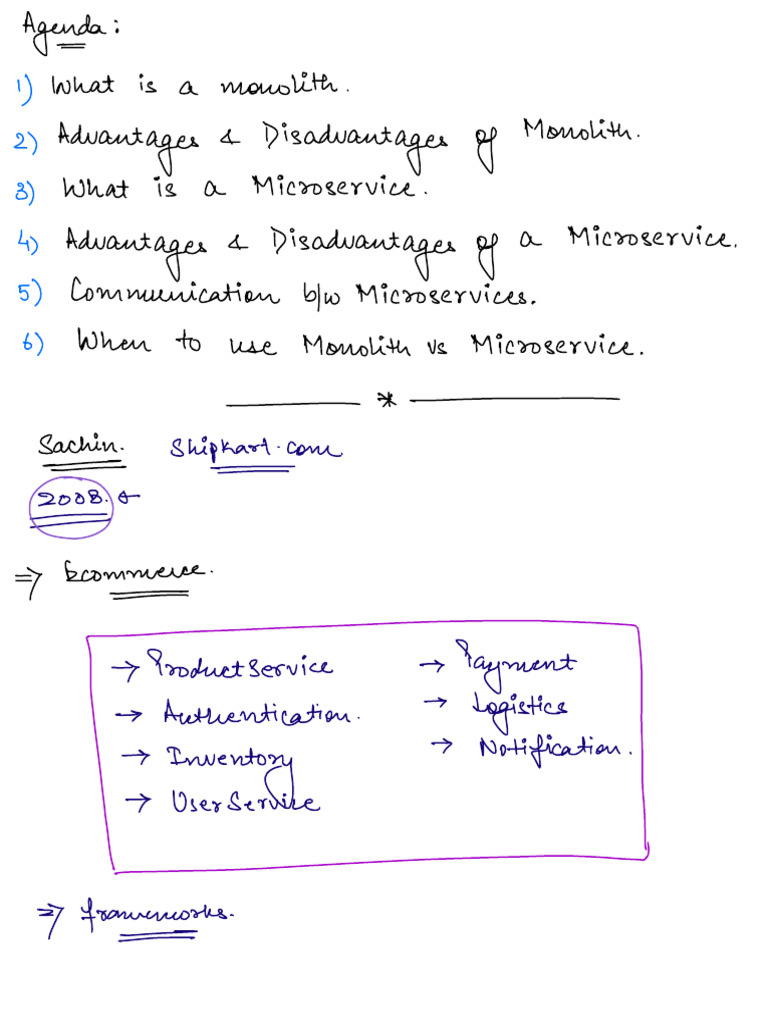 Agenda:
1) What is a monolith.
2) Advantages & Disadvantages of Monolith.
3) What is a Microservice.
4) Advantages & Disadvantages of a Microservice.
5) Communication b/w Microservices.
6) When to use Monolith vs Microservice.
*
Sachin. Shipkart.com
2008.
⇒ Ecommerce.
→ ProductService → Payment
→ Authentication. → Logistics
→ Inventory → Notification.
→ UserService
⇒ frameworks.